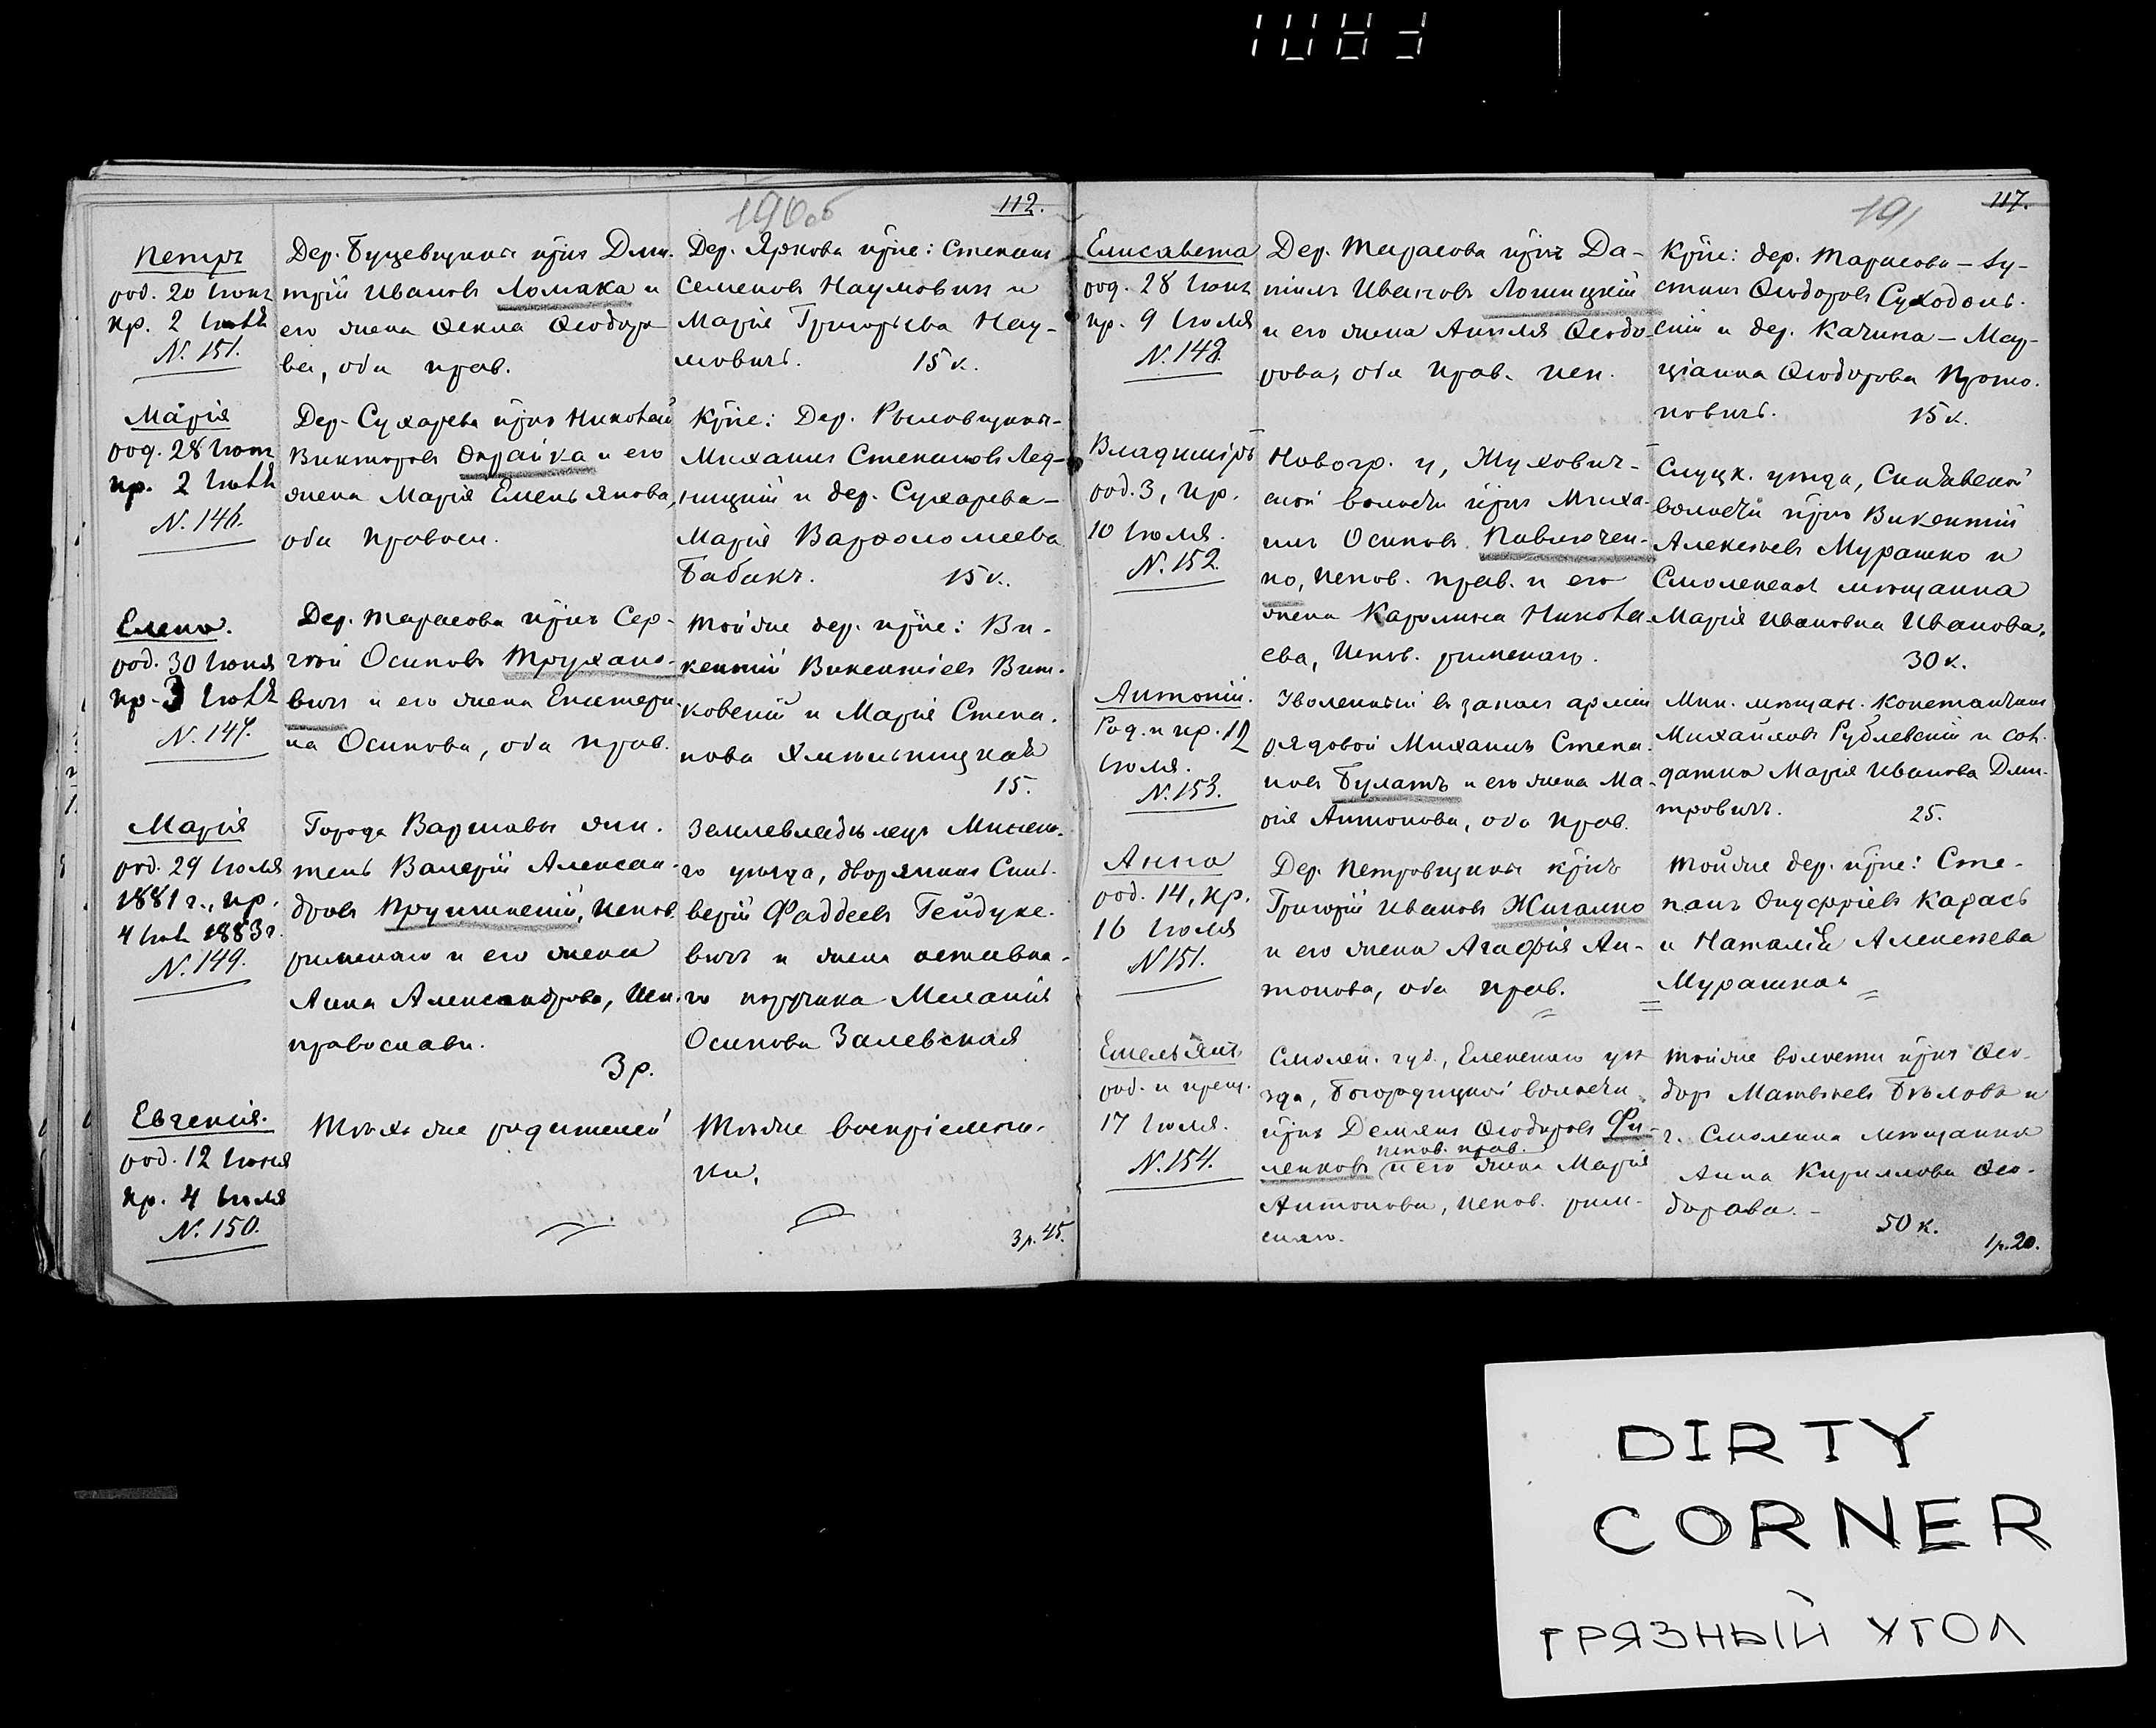 112.
Петръ
род. 20 Іюня
кр. 2 Іюля
N. 151.
Дер. Бузевщины кр̃нъ Дми-
трій Ивановъ Ломака и
его жена Ѳекла Ѳеодоро-
ва, оба прав.
Дер. Яркова кр̃не: Степанъ
Семеновъ Наумовичъ и
Марія Григорьева Нау-
мовичъ. 15 к.
Марія
род. 28 Іюня
кр. 2 Іюля
N. 146.
Дер. Сухарева кр̃нъ Николай
Викторовъ и его
жена Марія Емельянова,
оба правосл.
Кр̃не: Дер. Рыловщины-
Михаилъ Степановъ Лед-
ницкій и дер. Сухарева-
Марія Варѳоломеева
Бабакъ. 15 к.
Елена.
род. 30 Іюня
кр. 3 Іюля
N. 147.
Дер. Тарасова кр̃нъ Сер-
гѣй Осиповъ Трухано-
вичъ и его жена Екатери-
на Осипова, оба прав.
Той же дер. кр̃не: Ви-
кентій Викентіевъ Вит-
ковскій и Марія Степа-
нова Хмѣльницкая
15.
Марія
род. 29 Іюля
1881 г., кр.
4 Іюл. 1883 г.
N. 149.
Города Варшавы жи-
тель Валерій Алексан-
дровъ Прушинскій, испов.
римскаго и его жена
Анна Александрова, исп.
православн.
3 р.
Землевладѣлецъ Минска-
го уѣзда, дворянинъ Силь-
верій Фаддеевъ Гейдуке-
вичъ и жена отставна-
го поручика Меланія
Осипова Залевская
Евгенія.
род. 12 Іюня
кр. 4 Іюля
N. 150.
Тѣхъ же родителей
Тѣже воспріемни-
ки.
3 р. 45.
191
117.
Елисавета
род. 28 Іюня
кр. 9 Іюля
N. 148.
Дер. Тарасова кр̃нъ Да-
ніилъ Ивановъ Лошицкій
и его жена Анеля Ѳеодо-
рова, оба прав. исп.
Кр̃не: дер. Тарасова - Ау-
стинъ Ѳеодоровъ Суходоль-
скій и дер. Качина - Мар-
ціанна Ѳеодорова Прото-
повичъ. 15 к.
Владиміръ
род. 3, кр.
10 Іюля.
N. 152.
Новогр. у, Жухович-
ской волости кр̃нъ Миха-
илъ Осиповъ Павлючен-
ко, испов. прав. и его
жена Каролина Никола-
ева, испов. римскаго.
Слуцк. уѣзда, Синявской
волости кр̃нъ Викентій
Алексѣевъ Мурашко и
Смоленская мѣщанка
Марія Ивановна Иванова.
30 к.
Антоній.
Род. и кр. 12
Іюля.
N. 153.
Уволенный въ запасъ арміи
рядовой Михаилъ Степа-
новъ Булатъ и его жена Ма-
рія Антонова, оба прав.
Мин. мѣщан. Константинъ
Михайловъ Рублевскій и сол-
датка Марія Иванова Дми-
тровичъ. 25.
Анна
род. 14, кр.
16 Іюля
N 151.
Дер. Петровщины кр̃нъ
Григорій Ивановъ Жигалко
и его жена Агафія Ан-
тонова, оба прав.
Той же дер. кр̃не: Сте-
панъ Онуфріевъ Карась
и Наталія Алексѣева
Мурашка
Емельянъ
род. и крещ.
17 Іюля.
N. 154.
Смолен. губ., Ельнскаго уѣ-
зда, Богородицкой волости
кр̃нъ Демянъ Ѳеодоровъ Фи-
испов. прав.
ленковъ и его жена Марія
Антонова, испов. рим-
скаго.
Той же волости кр̃нъ Ѳео-
доръ Матвѣевъ Бѣловъ и
г. Смоленка мѣщанка
Анна Кириллова Ѳео-
дорова. -
50 к.
1 р. 20.
DIRTY
CORNER
ГРЯЗНЫЙ УГОЛ